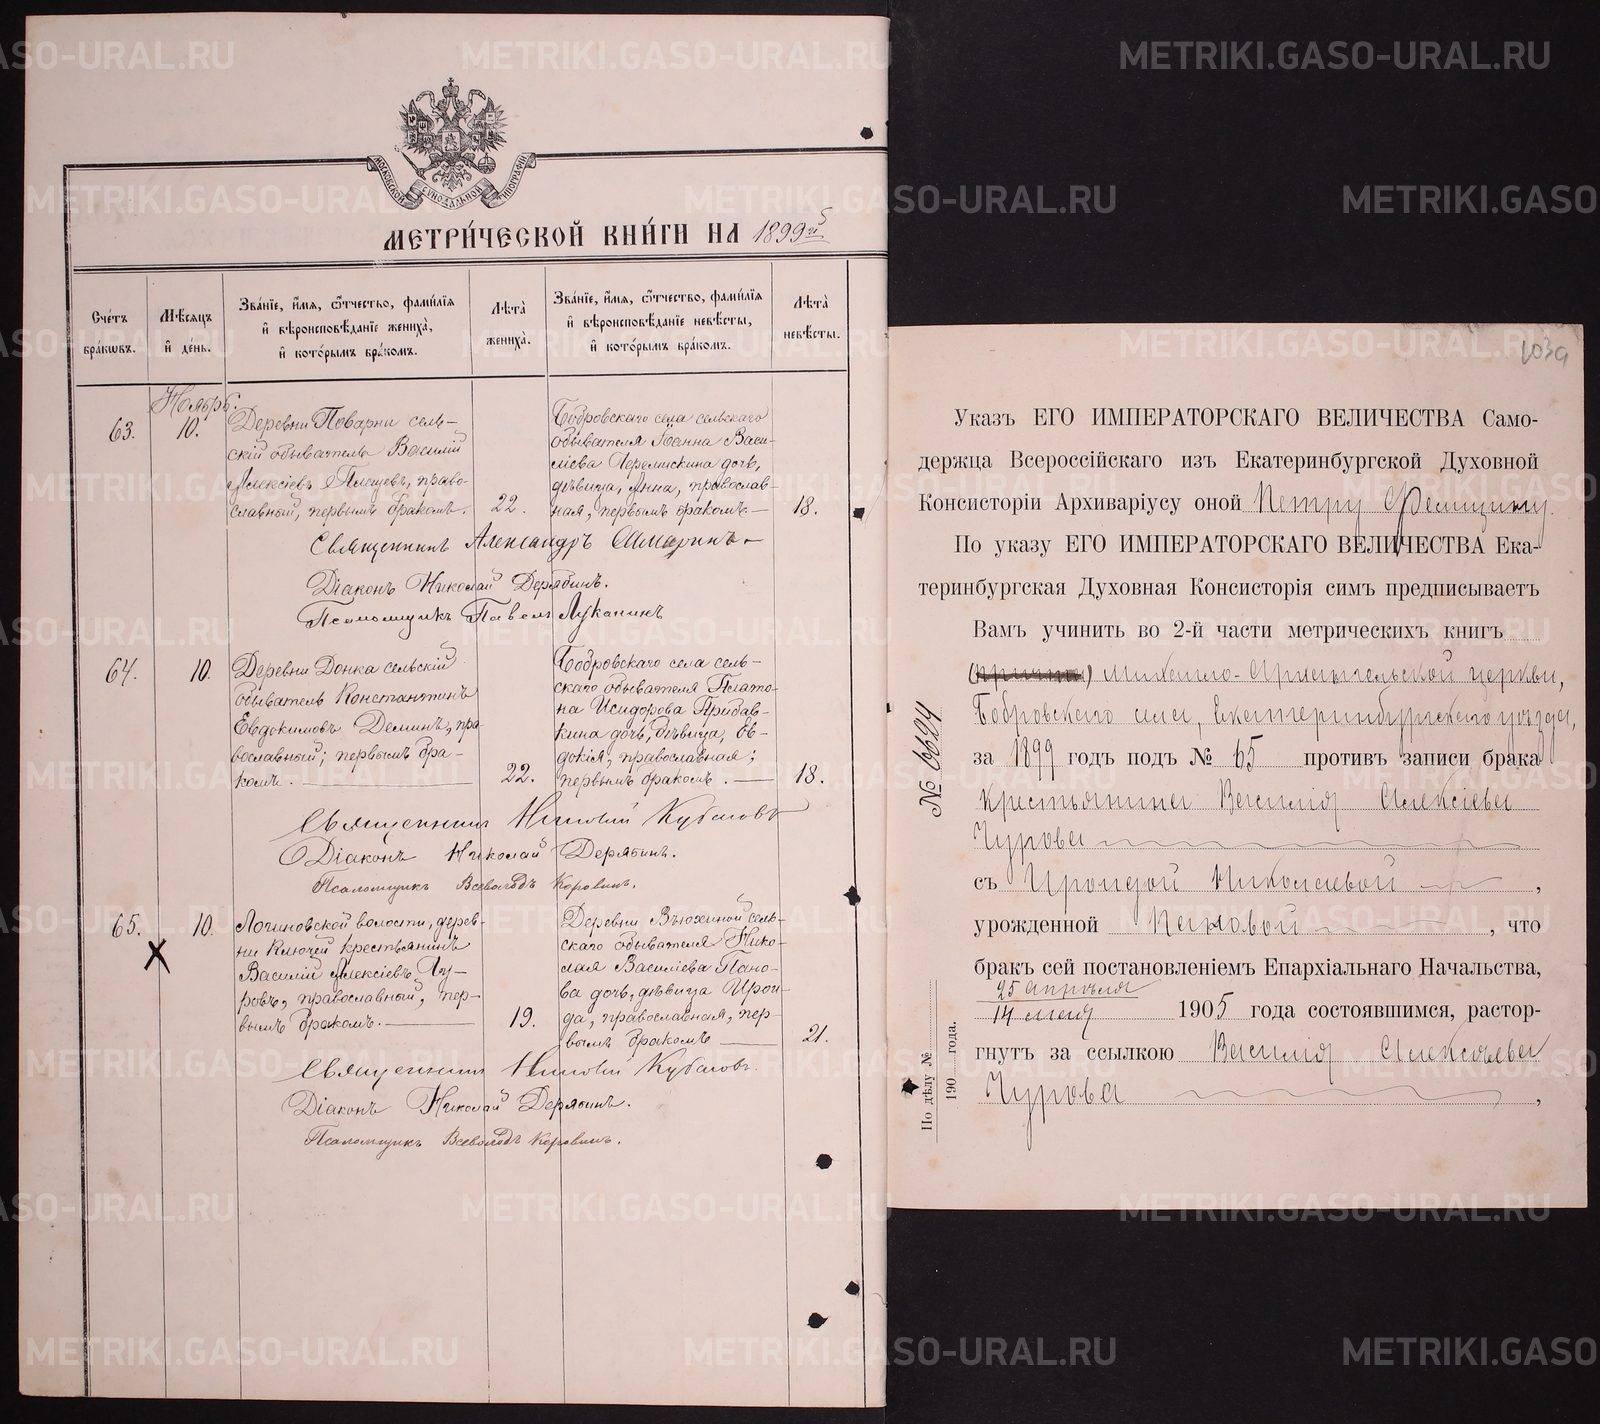 МОСКОВСКОЙ СѴНОДАЛЬНОЙ ТИПОГРАФІИ
МЕТРИ́ЧЕСКОЙ КНИ́ГИ НА 1899й
Сче́тъ бра́кѡвъ.
Мѣ́сяцъ и҆ де́нь.
Зва́нїе, и҆́мѧ, ѻ҆́тчество, фами́лїѧ и҆ вѣроисповѣ́данїе жениха̀, и҆ кото́рымъ бра́комъ.
Лѣ́та жениха̀.
Зва́нїе, и҆́мѧ, ѻ҆́тчество, фами́лїѧ и҆ вѣроисповѣ́данїе невѣ́сты, и҆ кото́рымъ бра́комъ.
Лѣ́та невѣ́сты.
Ноябрь.
63.
10.
Деревни Поварни сель-
скій обыватель Василій
Алексіевъ Плещевъ, право-
славный, первымъ бракомъ.
22.
Бобровскаго села сельскаго
обывателя Іоанна Васи-
ліева Черемискина дочь,
дѣвица, Анна, православ-
ная, первымъ бракомъ.
18.
Священникъ Александръ
Діаконъ Николай Дерябинъ.
Псаломщикъ Павелъ Луканинъ
64.
10.
Деревни Донка сельскій
обыватель Константинъ
Евдокимовъ Деминъ, пра-
вославный; первымъ бра-
комъ.
22.
Бобровскаго села сель-
скаго обывателя Плато-
на Исидорова Прибав-
кина дочь, дѣвица, Ев-
докія, православная;
первымъ бракомъ.
18.
Священникъ Николай Кубасовъ
Діаконъ Николай Дерябинъ.
Псаломщикъ Всеволодъ Коровинъ.
65.
10.
Логиновской волости, дерев-
ни Ключей крестьянинъ
Василій Алексіевъ Чу-
ровъ, православный, пер-
вымъ бракомъ.
19.
Деревни Вьюхиной сель-
скаго обывателя Нико-
лая Василіева Пано-
ва дочь, дѣвица Ирои-
да, православная, пер-
вымъ бракомъ
21.
Священникъ Николай Кубасовъ.
Діаконъ Николай Дерябинъ.
Псаломщикъ Всеволодъ Коровинъ.
103а
Указъ ЕГО ИМПЕРАТОРСКАГО ВЕЛИЧЕСТВА Само-
держца Всероссійскаго изъ Екатеринбургской Духовной
Консисторіи Архиваріусу оной Петру
По указу ЕГО ИМПЕРАТОРСКАГО ВЕЛИЧЕСТВА Ека-
теринбургская Духовная Консисторія симъ предписываетъ
Вамъ учинить во 2-й части метрическихъ книгъ
Михаило-Архангельской церкви,
Бобровскаго села, Екатеринбургскаго уѣзда,
за 1899 годъ подъ № 65 противъ записи брака
крестьянина Василія Алексіева
Чурова
съ Ироидой Николаевой,
урожденной Пановой, что
бракъ сей постановленіемъ Епархіальнаго Начальства,
25 апрѣля
14 мая 1905 года состоявшимся, растор-
гнутъ за ссылкою Василія Алексѣева
Чурова,
№ 6624
По дѣлу №
190 года.
METRIKI.GASO-URAL.RU